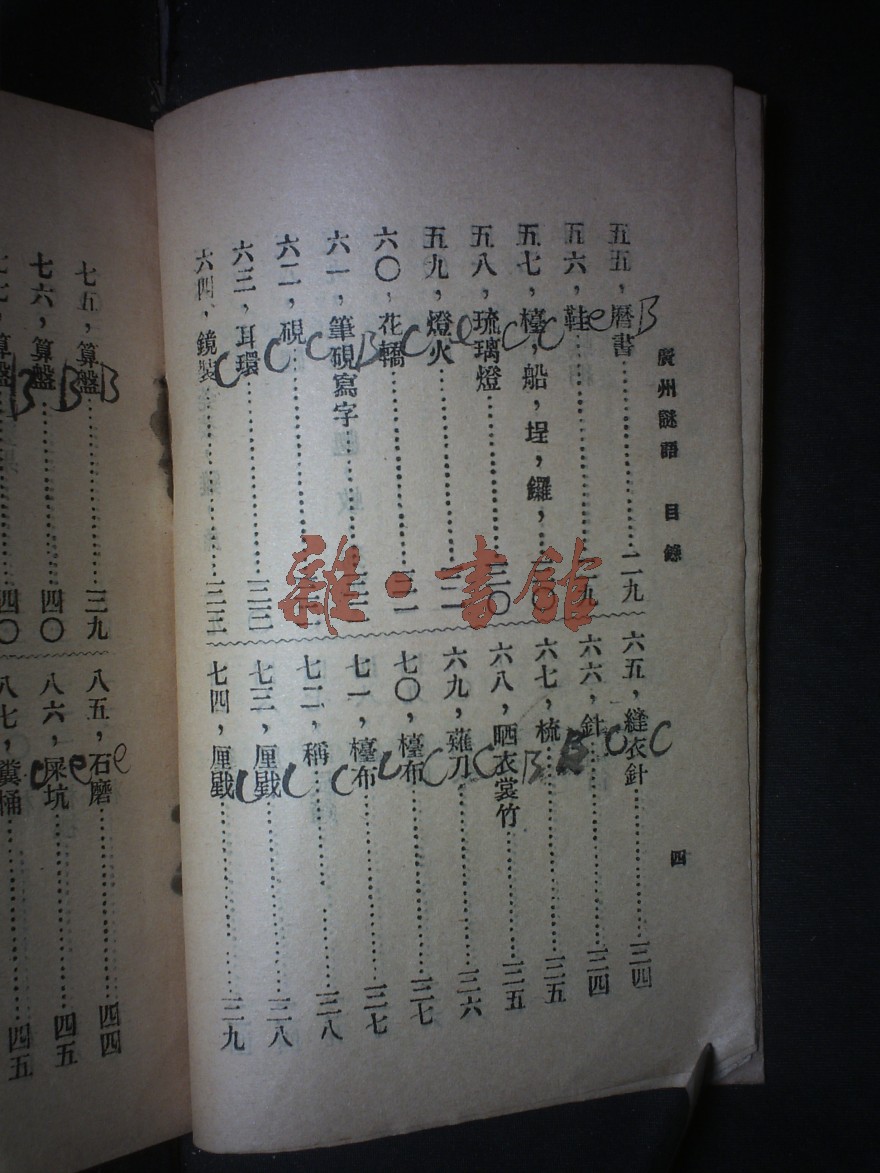 廣州謎語　目錄
四
五五，曆書……二九
五六，鞋……二九
五七，檯，船，埕，鑼，…三〇
五八，琉璃燈……三〇
五九，燈火……三一
六〇，花轎……三一
六一，筆硯寫字……
六二，硯……
六三，耳環……三三
六四，鏡裝……三三
六五，縫衣針……三四
六六，針……三四
六七，梳……三五
六八，晒衣裳竹……三五
六九，薙刀……三六
七〇，檯布……三七
七一，檯布……三七
七二，稱……三八
七三，厘戥……三八
七四，厘戥……三九
七五，算盤……三九
七六，算盤……四〇
七七，算盤……四〇
八五，石磨……四四
八六，屎坑……四五
八七，糞桶……四五
B
e
C
C
e
C
B
C
C
C
C
C
B
B
C
C
C
C
C
C
B
B
B
e
e
雜·書館